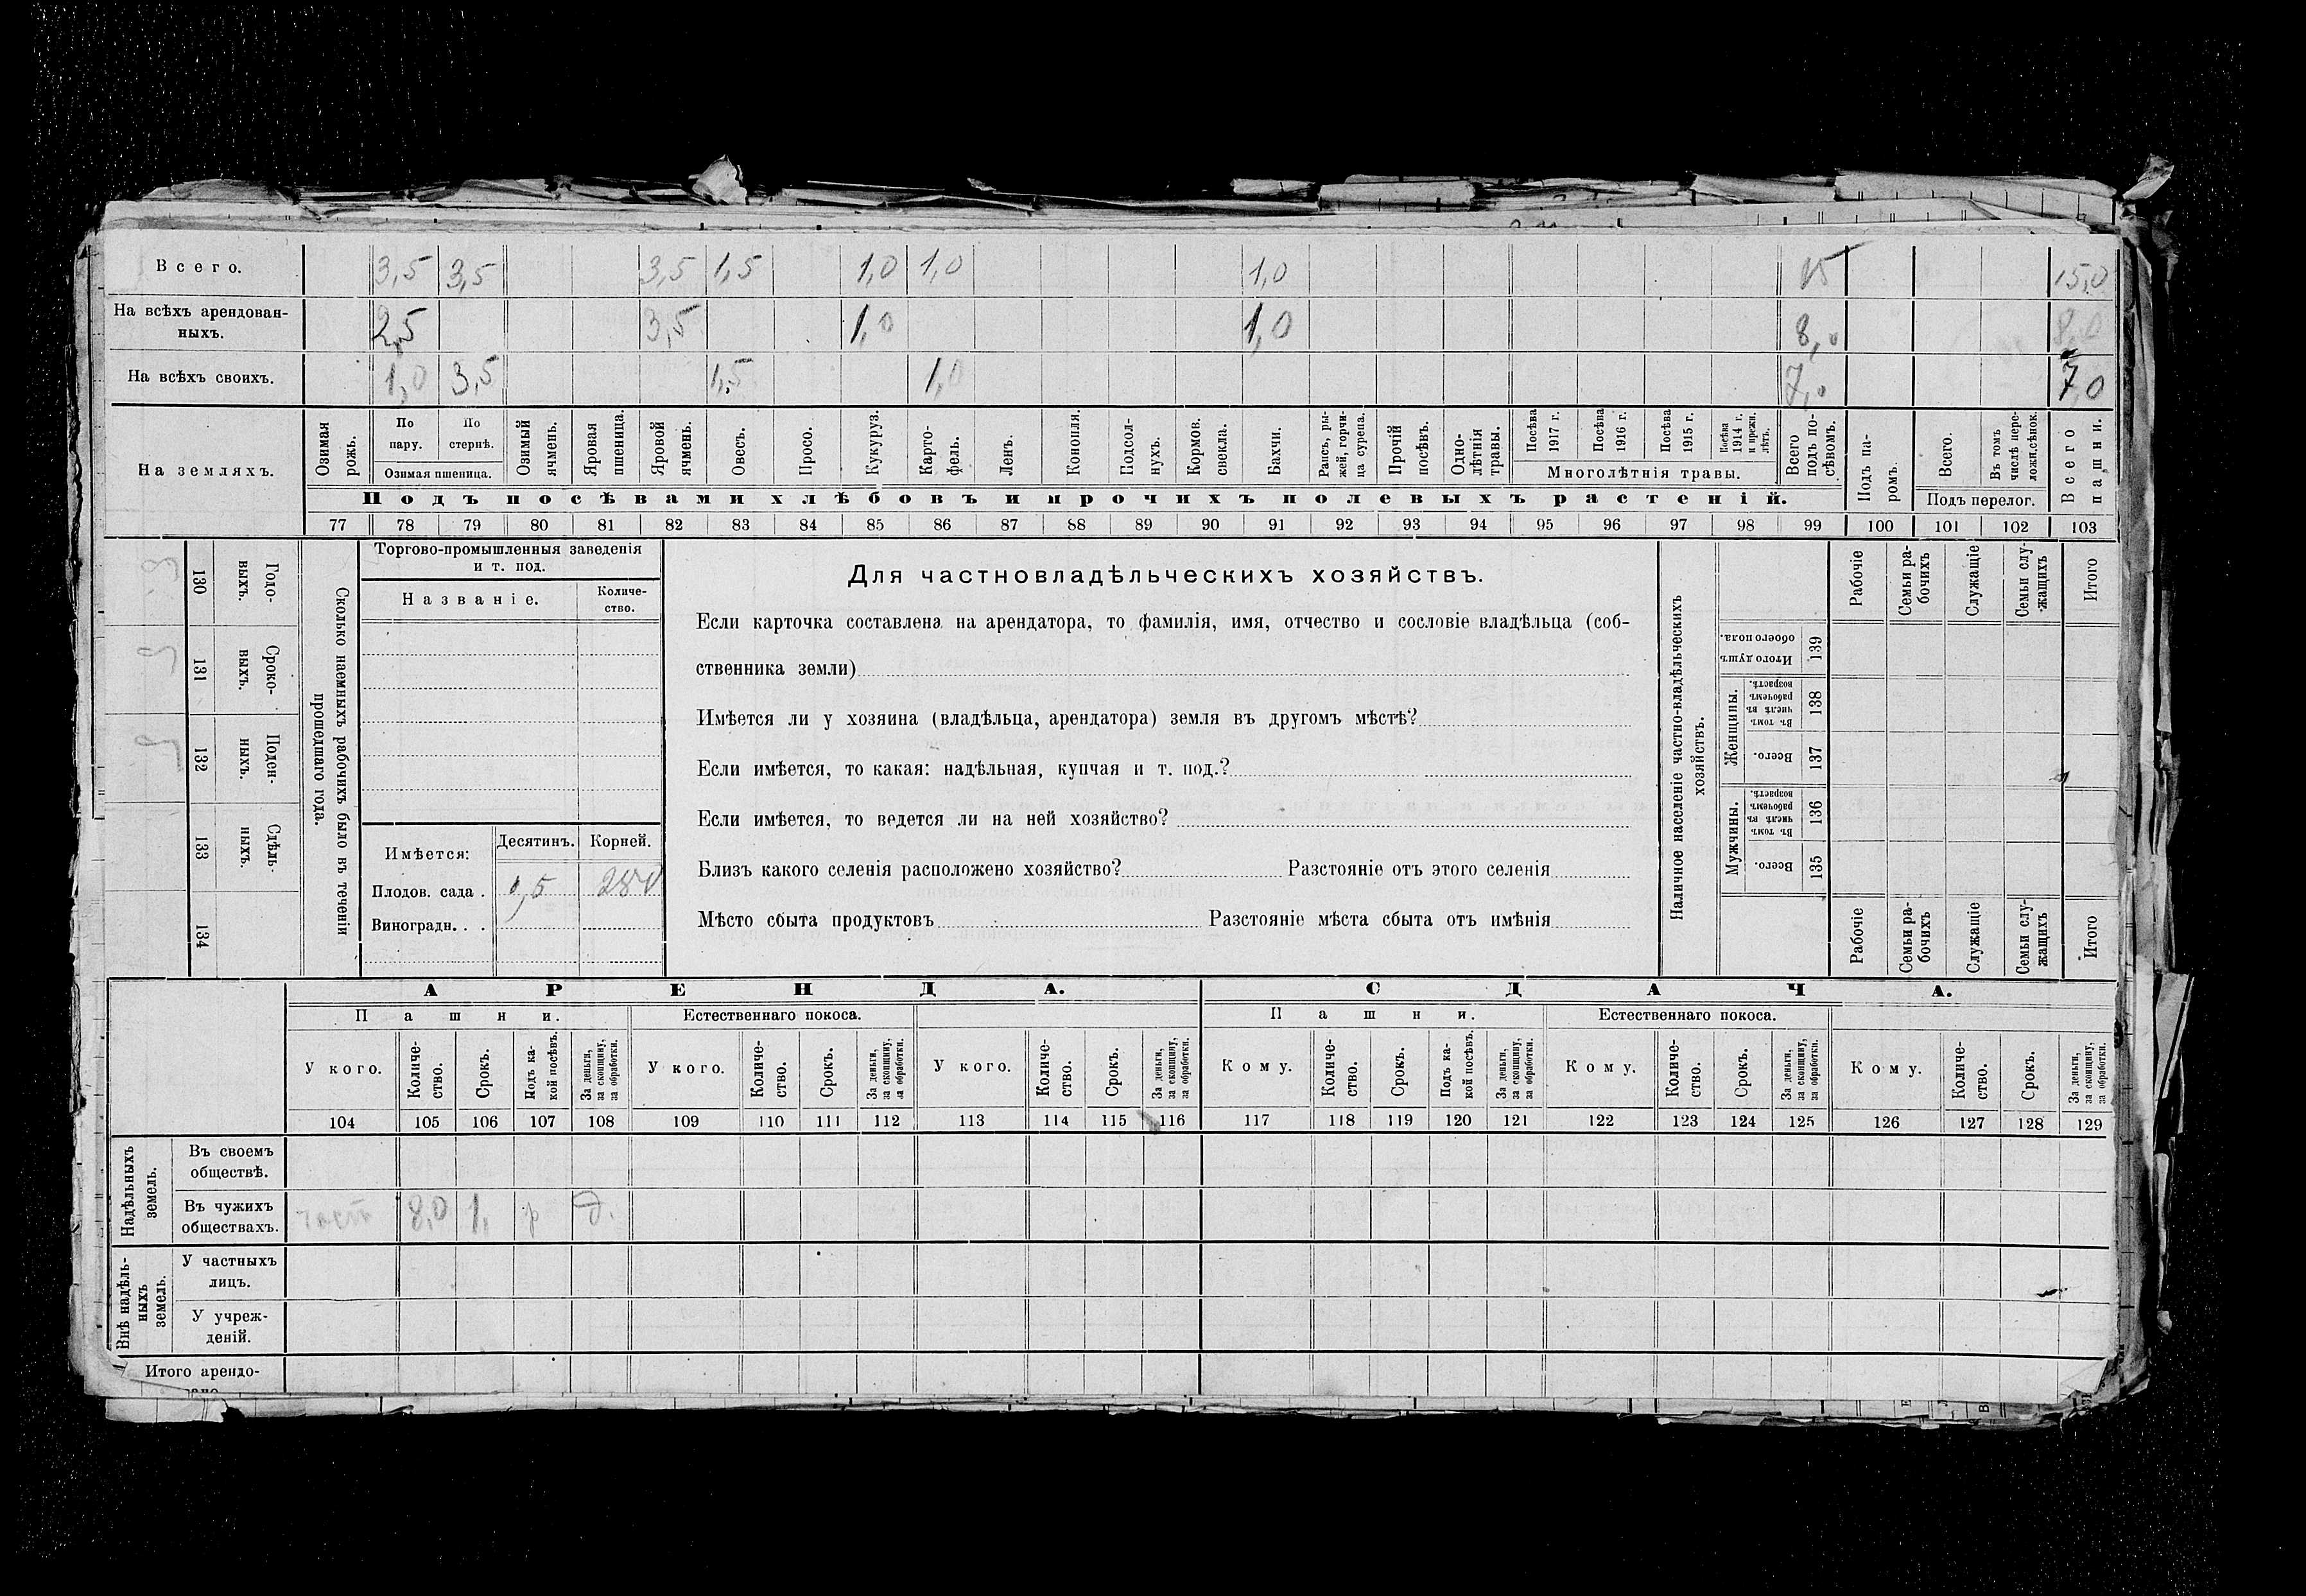 Всего. 3,5 3,5 3,5 1,5 1,0 1,0 1,0 15 15,0
На всѣхъ арендован-
ныхъ. 2,5 3,5 1,0 1,0 8,0 8,0
На всѣхъ своихъ. 1,0 3,5 1,5 1,0 7,0 7,0
На земляхъ.
Озимая рожь.
По пару.
По стернѣ.
Озимая пшеница.
Озимый ячмень.
Яровая пшеница.
Яровой ячмень.
Овесъ.
Просо.
Кукуруз.
Карто-
фель.
Ленъ.
Конопля.
Подсол-
нухъ.
Кормов. свекла.
Бахчи.
Рапсъ, ры-
жей, горчи-
ца сурепа.
Прочій посѣвъ.
Одно-
лѣтнія травы.
Посѣва 1917 г.
Посѣва 1916 г.
Посѣва 1915 г.
Посѣва 1914 г. и прежн. лѣтъ.
Многолѣтнія травы.
Всего подъ по-
сѣвомъ.
Подъ па-
ромъ.
Всего.
Въ томъ числѣ пере-
ложн.сѣнок.
Подъ перелог.
Всего пашни.
Подъ посѣвами хлѣбовъ и прочихъ полевыхъ растеній.
77 78 79 80 81 82 83 84 85 86 87 88 89 90 91 92 93 94 95 96 97 98 99 100 101 102 103
130 Годо-
выхъ.
131 Сроко-
выхъ.
132 Поден-
ныхъ.
133 Сдѣль-
ныхъ.
134
Сколько наемныхъ рабочихъ было въ теченіи
прошедшаго года.
Торгово-промышленныя заведенія
и т. под.
Названіе.
Количе-
ство.
Имѣется: Десятинъ. Корней.
Плодов. сада . 0,5
Виноградн. . .
Для частновладѣльческихъ хозяйствъ.
Если карточка составлена на арендатора, то фамилія, имя, отчество и сословіе владѣльца (соб-
ственника земли)
Имѣется ли у хозяина (владѣльца, арендатора) земля въ другомъ мѣстѣ?
Если имѣется, то какая: надѣльная, купчая и т. под.?
Если имѣется, то ведется ли на ней хозяйство?
Близъ какого селенія расположено хозяйство? Разстояніе отъ этого селенія
Мѣсто сбыта продуктовъ Разстояніе мѣста сбыта отъ имѣнія
Наличное населеніе частно-владѣльческихъ
хозяйствъ.
Рабочіе
Семьи ра-
бочихъ
Служащіе
Семьи слу-
жащихъ
Итого
Итого душъ обоего пола. 139
Женщины.
Въ томъ числѣ въ рабочемъ возрастѣ. 138
Всего. 137
Мужчины.
Въ томъ числѣ въ рабочемъ возрастѣ. 136
Всего. 135
Рабочіе
Семьи ра-
бочихъ
Служащіе
Семьи слу-
жащихъ
Итого
АРЕНДА. СДАЧА.
Пашни. Естественнаго покоса. Пашни. Естественнаго покоса.
У кого.
Количе-
ство.
Срокъ.
Подъ ка-
кой посѣвъ.
За деньги, за скопщину, за обработки.
У кого.
Количе-
ство.
Срокъ.
За деньги, за скопщину, за обработки.
У кого.
Количе-
ство.
Срокъ.
За деньги, за скопщину, за обработки.
Кому.
Количе-
ство.
Срокъ.
Подъ ка-
кой посѣвъ.
За деньги, за скопщину, за обработки.
Кому.
Количе-
ство.
Срокъ.
За деньги, за скопщину, за обработки.
Кому.
Количе-
ство.
Срокъ.
За деньги, за скопщину, за обработки.
104 105 106 107 108 109 110 111 112 113 114 115 116 117 118 119 120 121 122 123 124 125 126 127 128 129
Надѣльныхъ земель.
Въ своемъ
обществѣ.
Въ чужихъ
обществахъ. 8,0 1, р д.
Внѣ надѣль-
ныхъ земель.
У частныхъ
лицъ.
У учреж-
деній.
Итого арендо-